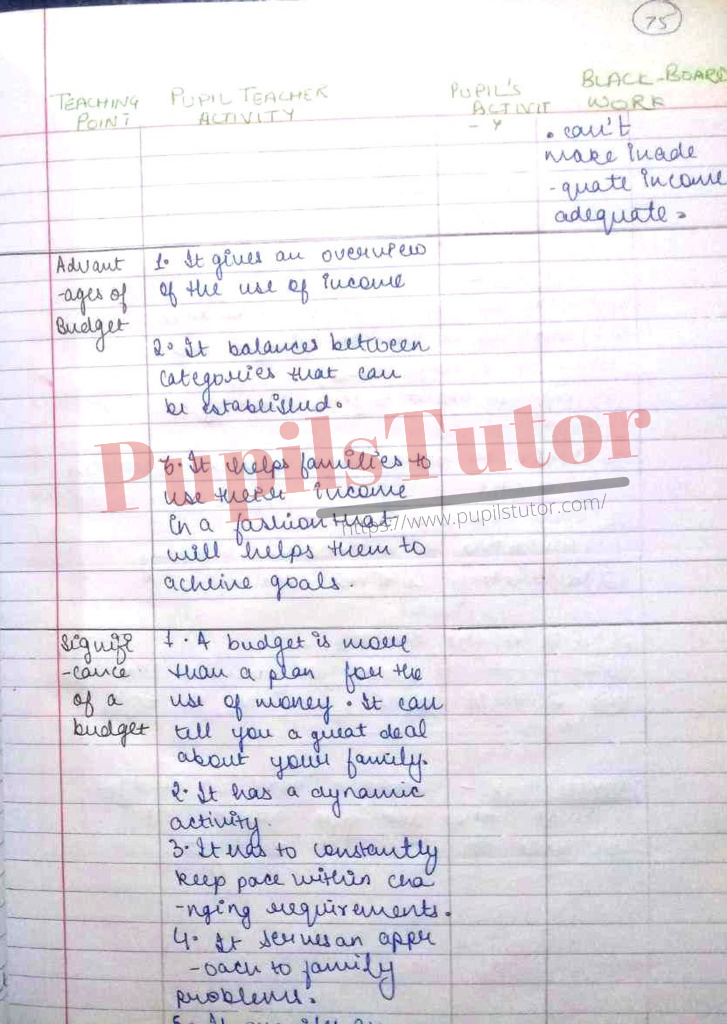 75
TEACHING POINT
PUPIL TEACHER ACTIVITY
PUPIL'S ACTIVIT - Y
BLACK-BOARD WORK
• can't
make inade
-quate income
adequate.
Advant
-ages of
Budget
1. It gives an overview
of the use of income
2. It balances between
categories that can
be established.
3. It helps families to
use their income
in a fashion that
will helps them to
acheive goals.
PupilsTutor
https://www.pupilstutor.com/
Signifi
-cance
of a
budget
1. A budget is more
than a plan for the
use of money. It can
tell you a great deal
about your family.
2. It has a dynamic
activity.
3. It has to constantly
keep pace within cha
-nging requirements.
4. It serves an appr
-oach to family
problems.
5. It